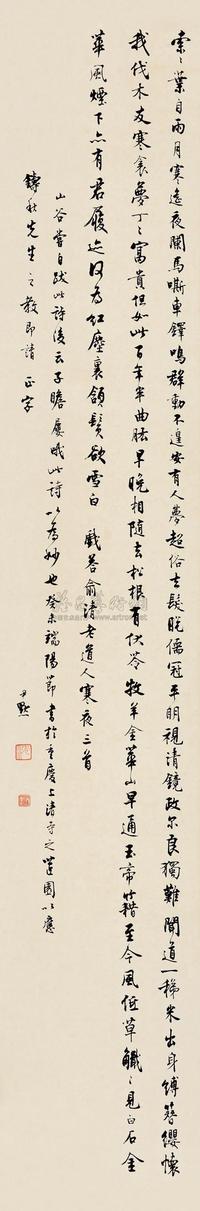 索〻葉自雨月寒遙夜闌馬嘶車鐸鳴群動不遑安有人夢超俗去髮脫儒冠平明視清鏡政尔良獨難聞道一稊米出身縛簪纓懷
我伐木友寒衾夢丁〻富貴但如此百年半曲肱早晚相隨去松根有伏苓牧羊金華山早通玉帝籍至今風低草〻見白石金
華風煙下亦有君履迹何為紅塵裏頷鬚欲雪白 戲答俞清老道人寒夜三首
山谷嘗自跋此詩後云子瞻屢哦此詩以為妙也癸未端陽節書於重慶上清寺之園以應
鑄秋先生之教即請 正字
尹默